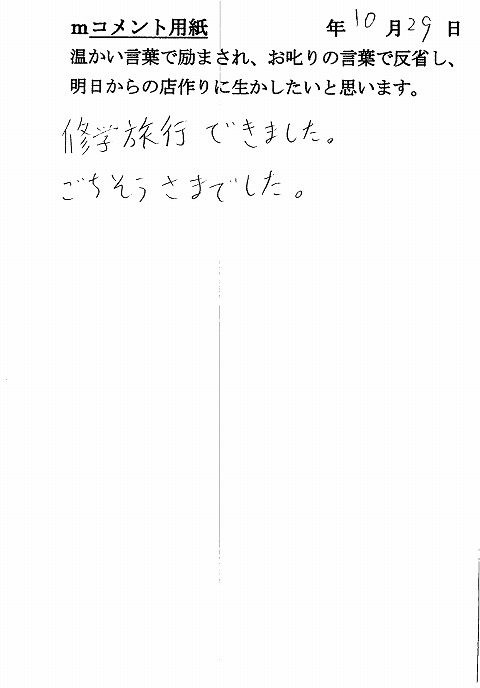 mコメント用紙 年10月29日
温かい言葉で励まされ、お叱りの言葉で反省し、
明日からの店作りに生かしたいと思います。
修学旅行できました。
ごちそうさまでした。